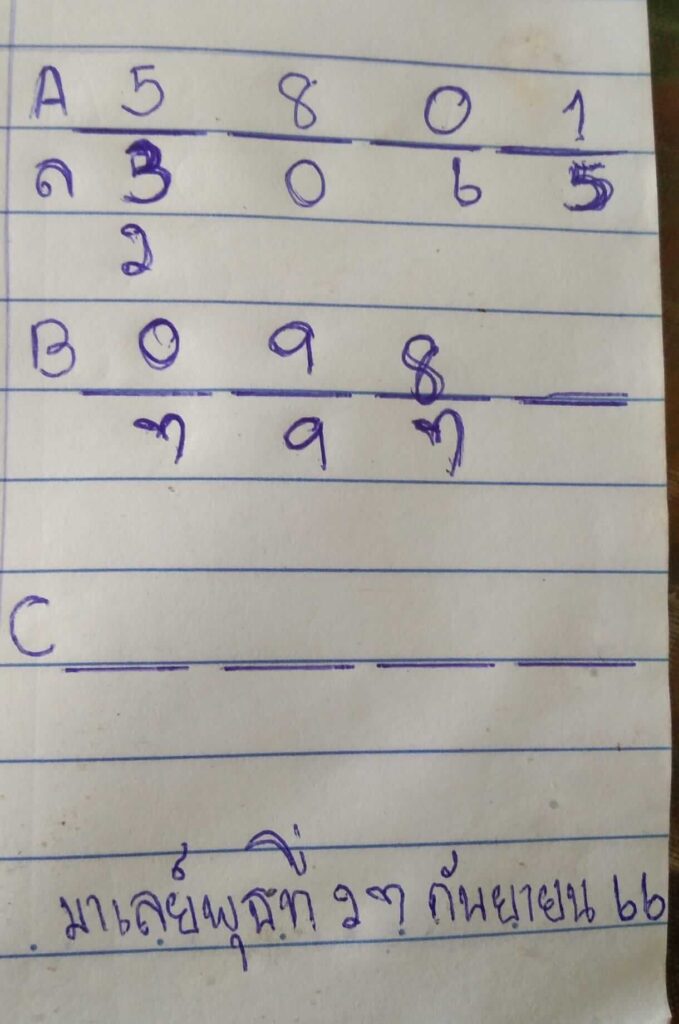 A 5 8 0 1
ล 3 0 6 5
2
B 0 9 8
7 9 7
C
มาเลย์พุธที่ 27 กันยายน 66